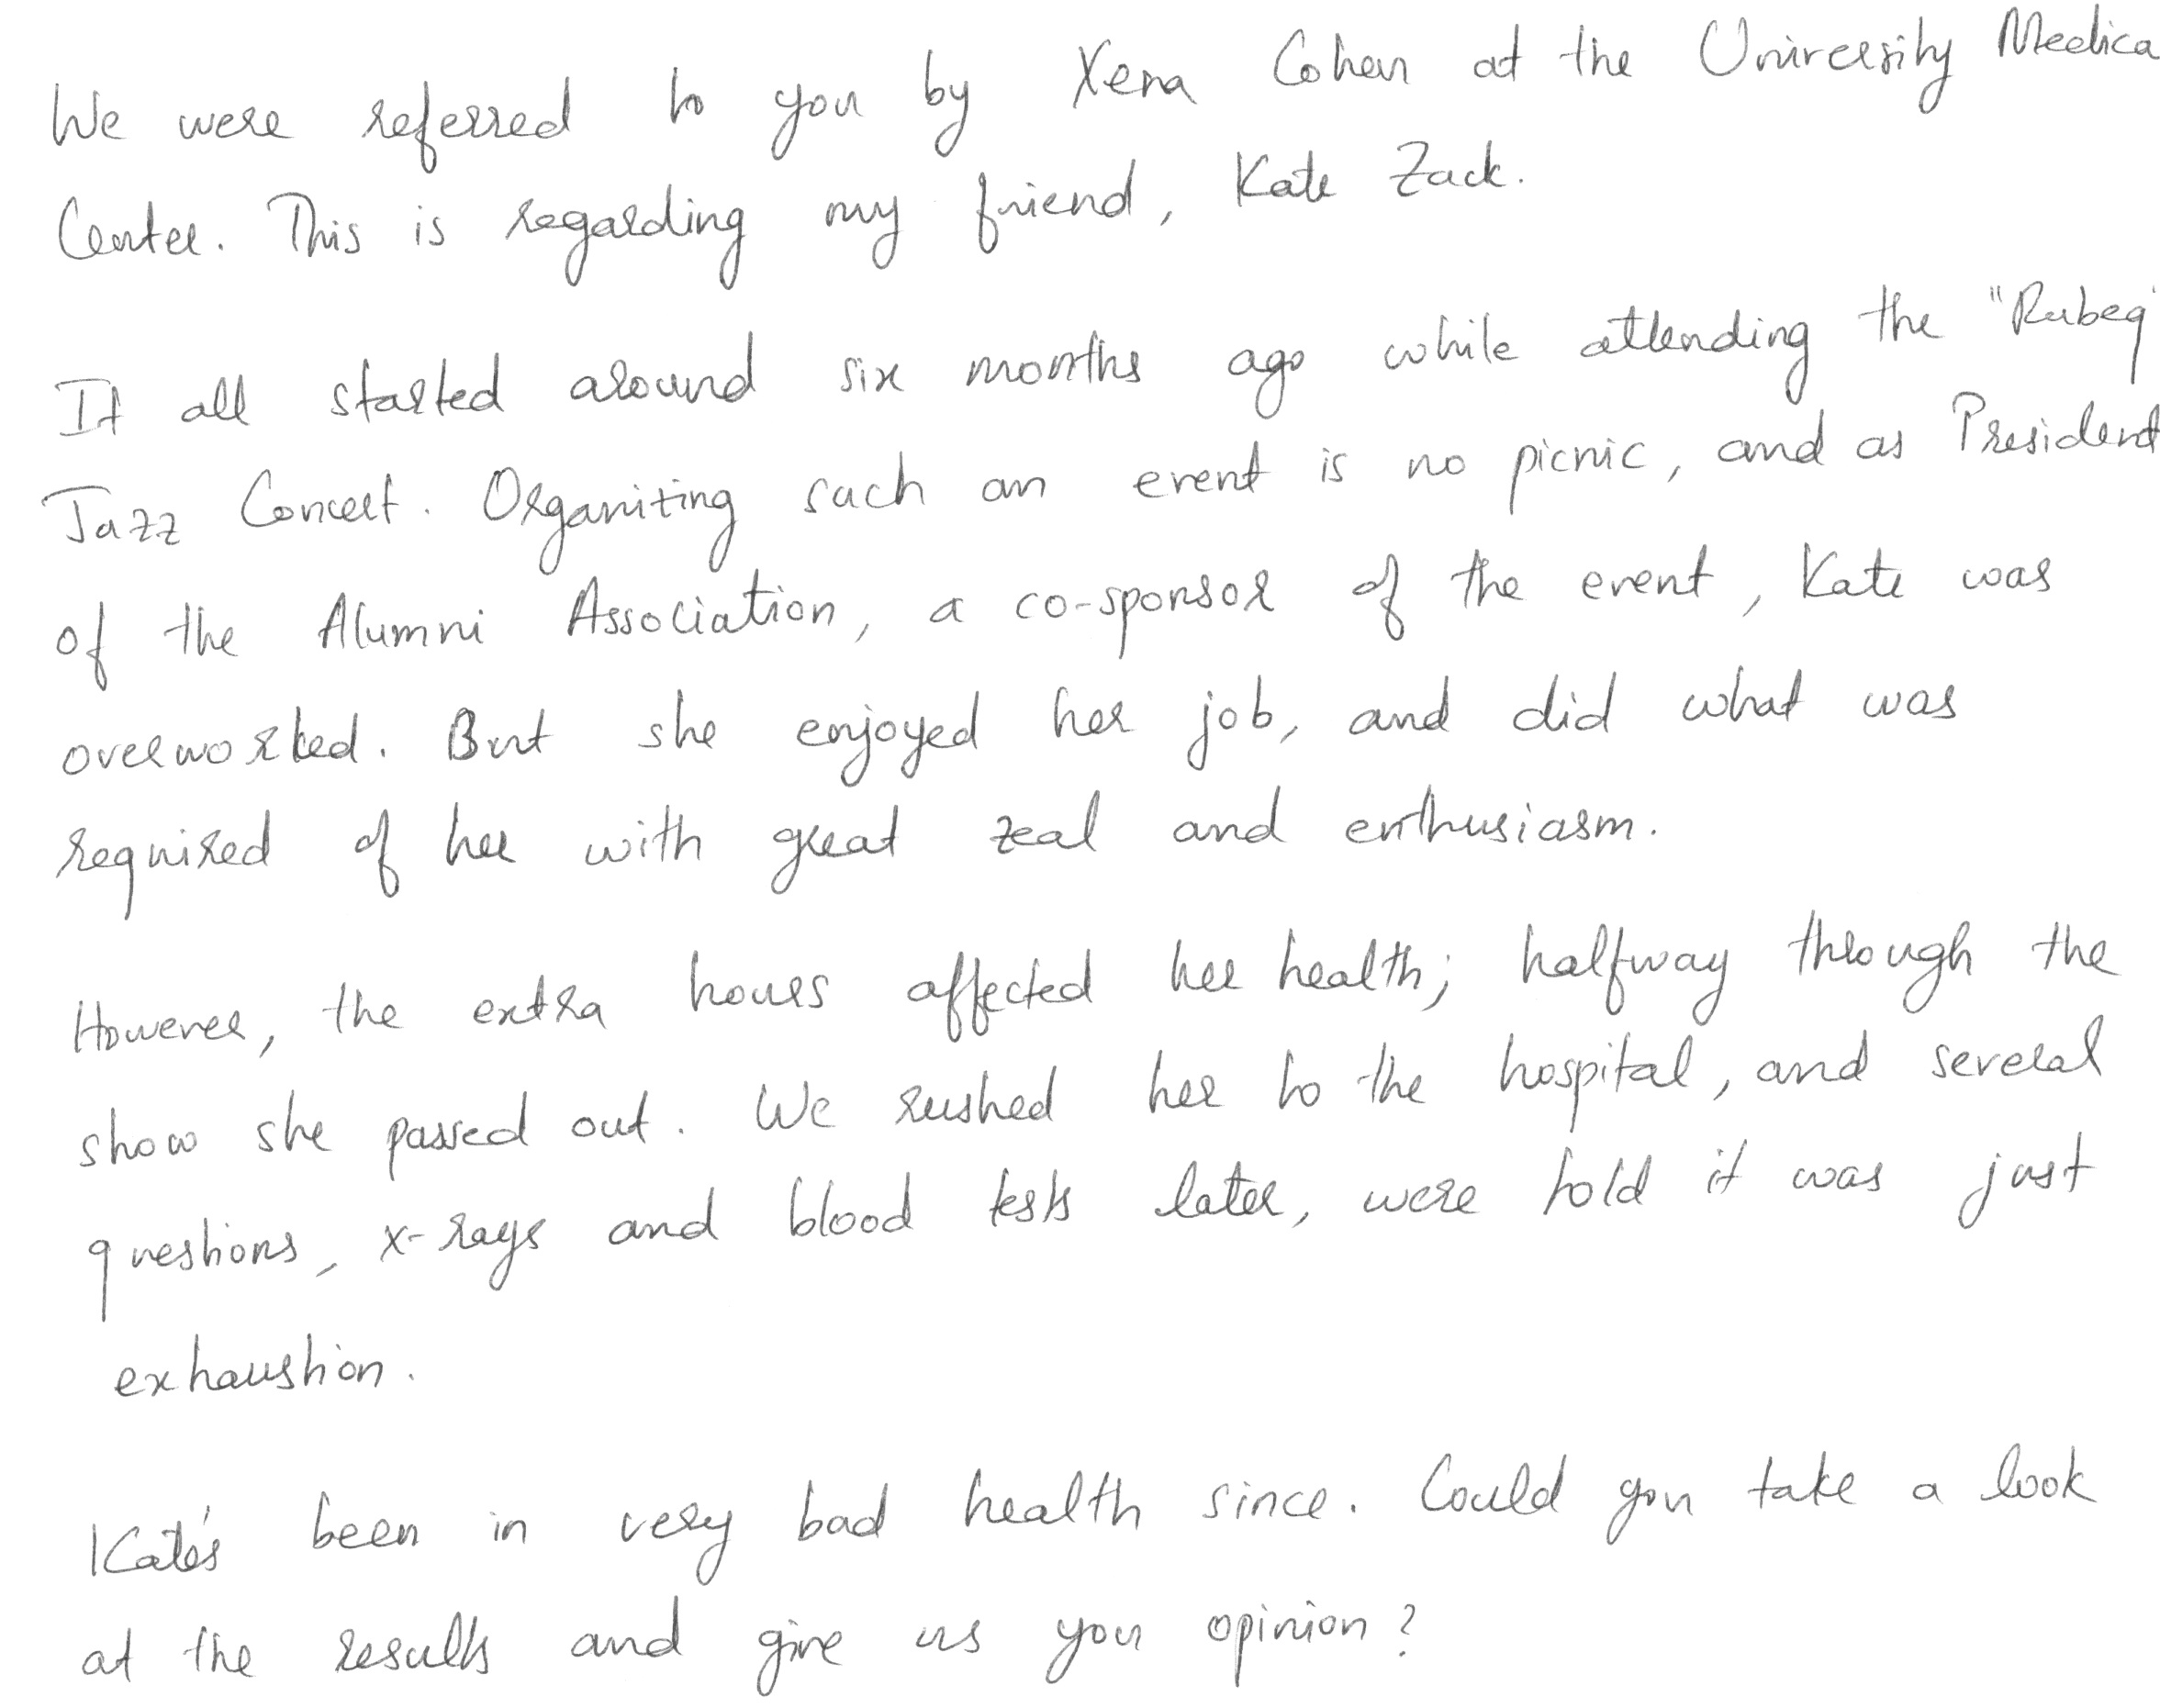 We were referred to you by Xena Cohen at the University Medica
Center. This is regarding my friend, Kate Zack.
It all started around six months ago while attending the "Rubeq"
Jazz Concert. Organizing such an event is no picnic, and as President
of the Alumni Association, a co-sponsor of the event, Kate was
overworked. But she enjoyed her job, and did what was
required of her with great zeal and enthusiasm.
However, the extra hours affected her health; halfway through the
show she passed out. We rushed her to the hospital, and several
questions, x-rays and blood tests later, were told it was just
exhaustion.
Kate's been in very bad health since. Could you take a look
at the results and give us you opinion?